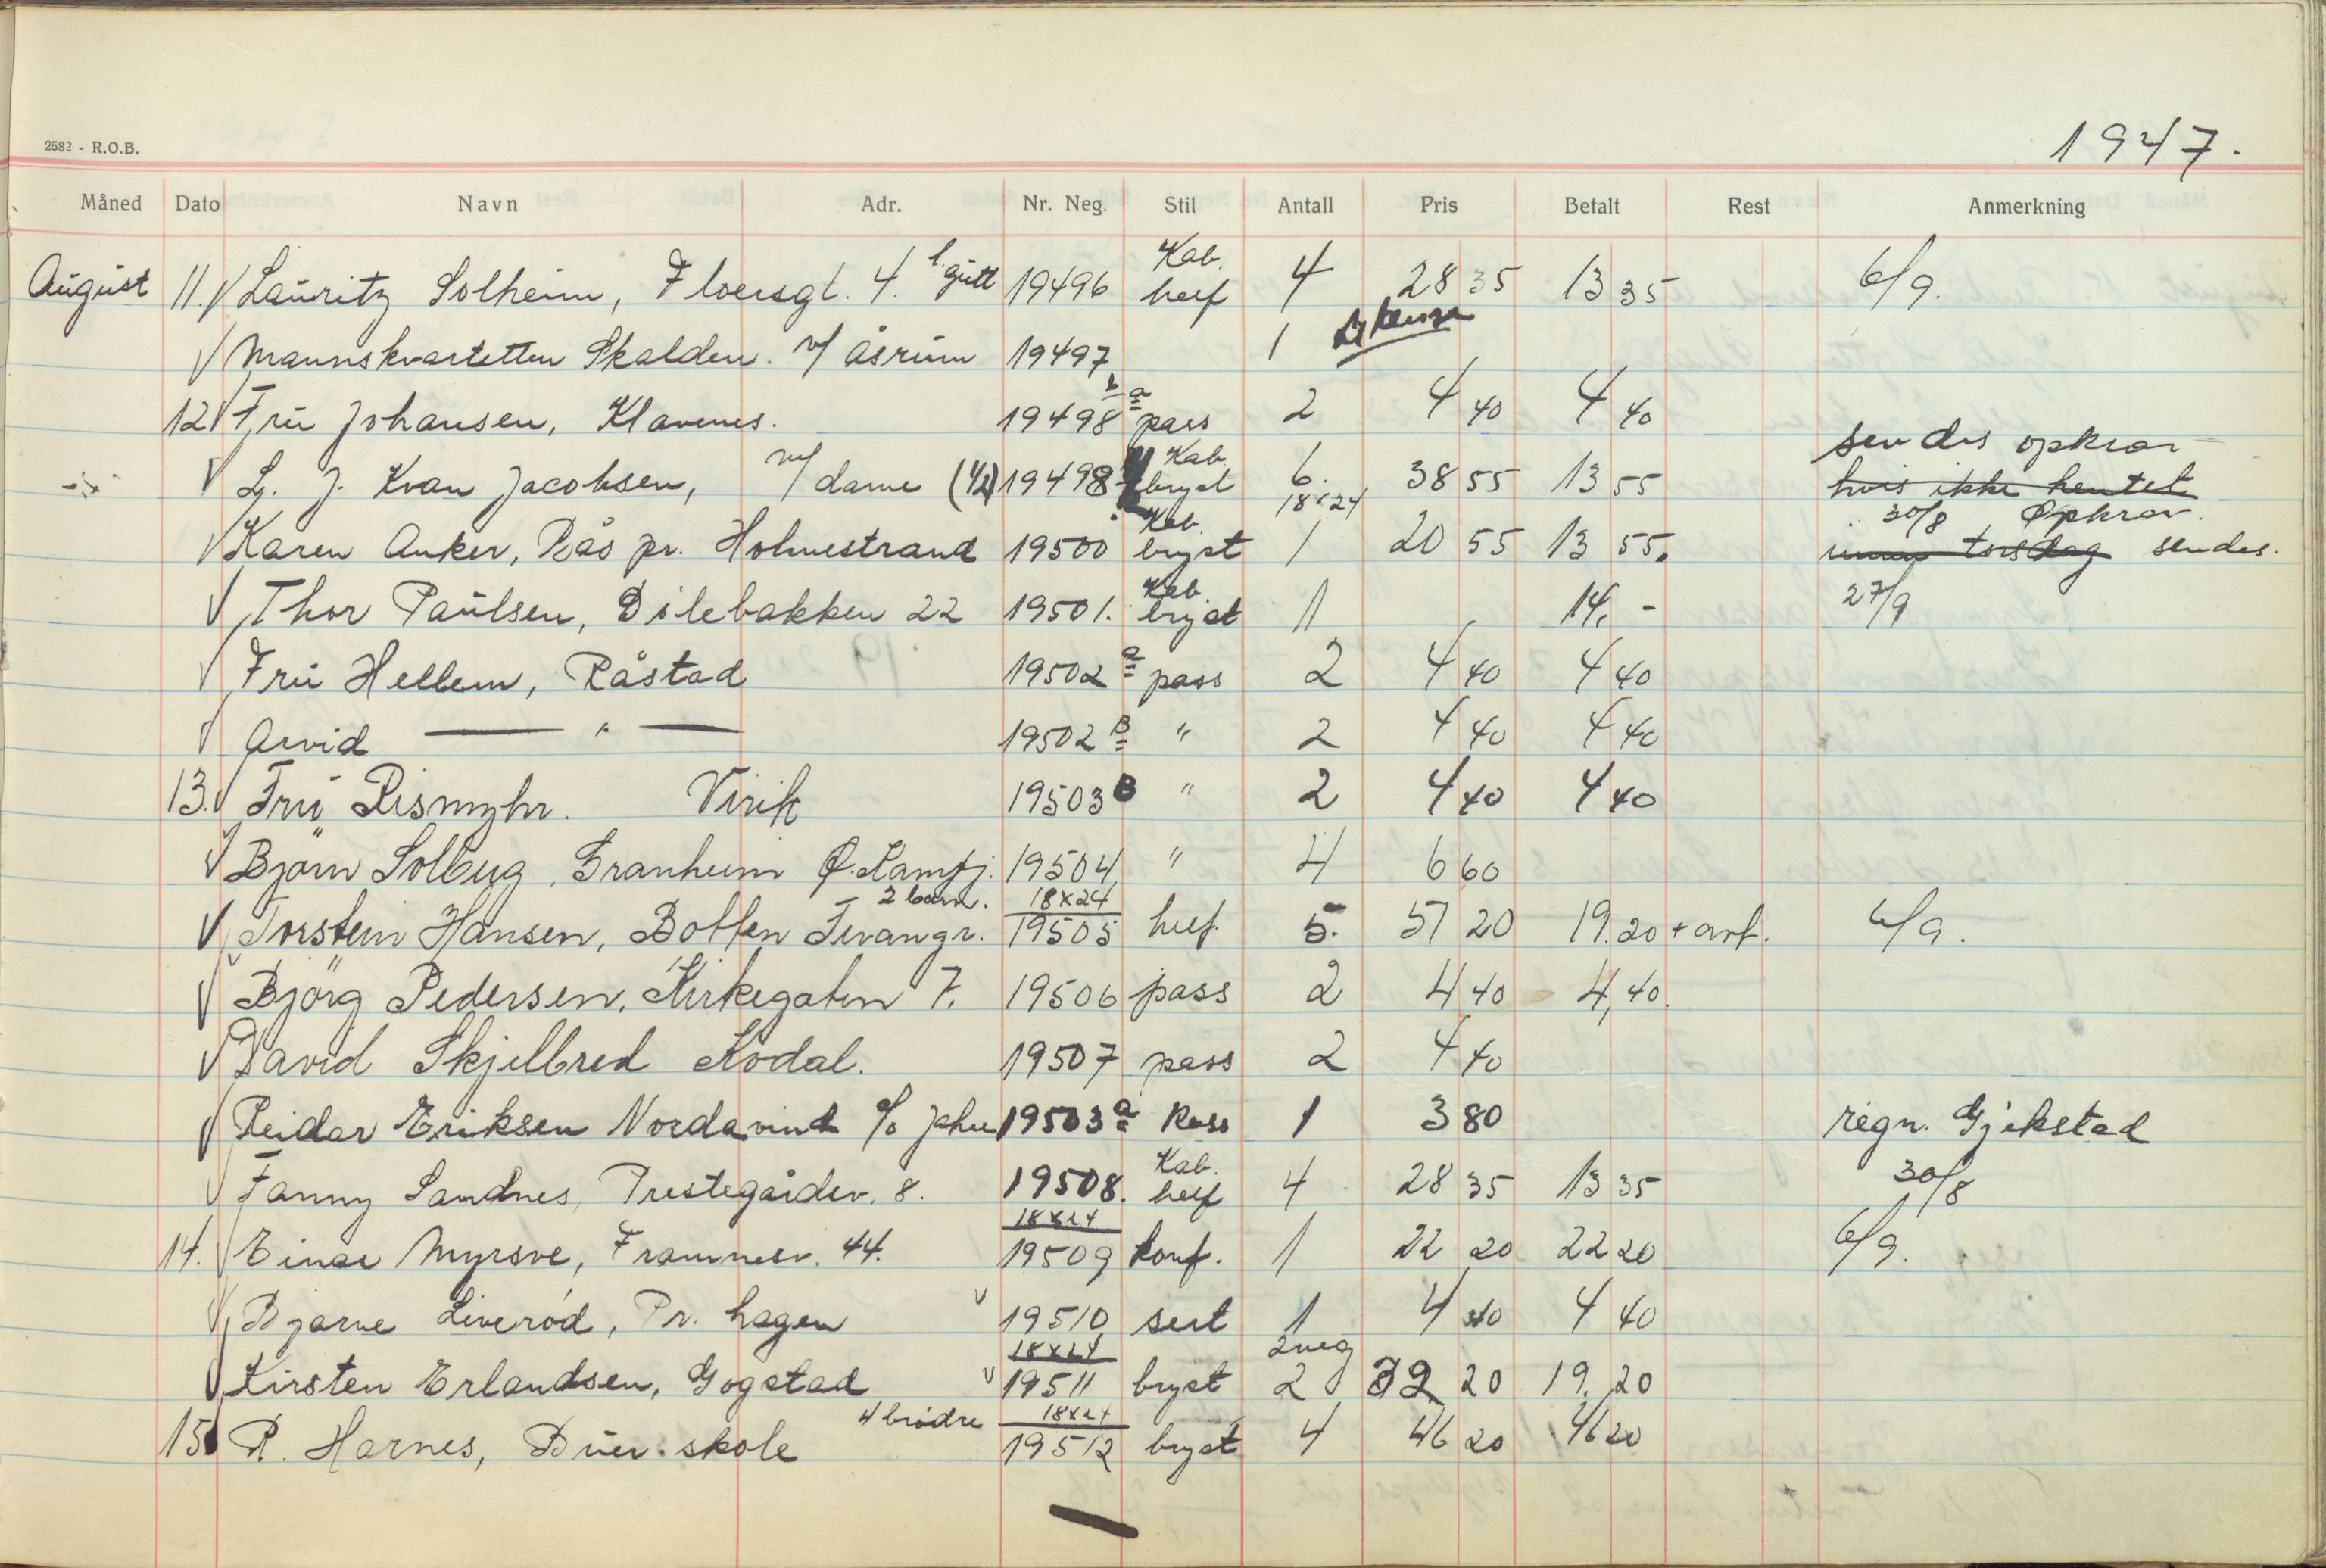 2582 - R.O.B.
1947.
Måned Dato Navn Adr. Nr. Neg. Stil Antall Pris Betalt Rest Anmerkning
August 11. Lauritz Solheim, Floersgt. 4. l. gutt 19496 Kab. helf 4 28 35 13 35 6/9.
Mannskvartetten Skalden. v/ Åsrum 19497 1
12 Fru Johansen, Klavenes. 19498 a pass 2 4 40 4 40
L. J. Kvan Jacobsen, m/ dame (1/2) 19498 Kab bryst 6. 38 55 13 55 sendes opkrav hvis ikke hentet
Karen Anker, Bås pr. Holmestrand 19500 Kab. bryst 18x24 1 20 55 13 55. 30/8 Opkrav. innen torsdag sendes.
Thor Paulsen, Dølebakken 22 19501. Kab. bryst 1 14. - 27/9
Fru Hellem, Råstad 19502 a pass 2 4 40 4 40
Arvid — " — 19502 B " 2 4 40 4 40
13. Fru Rismyhr. Virik 19503 B " 2 4 40 4 40
Bjørn Solberg, Granheim Ø. Kamfj. 19504 " 4 6 60
Torstein Hansen, Botten Tevangr. 2 barn. 18x24 19505 helf. 5. 57 20 19. 20 + avf. 6/9.
Bjørg Pedersen, Kirkegaten 7. 19506 pass 2 4 40 4, 40.
David Skjelbred Kodal. 19507 pass 2 4 40
Reidar Eriksen Nordavind c/o Jahre 19503 a Pass 1 3 80 regn. Gjekstad
Fanny Sandnes, Prestegårdev. 8. 19508. Kab. helf 4 28 35 13 35 30/8
14. Einar Myrsve, Framnesv. 44. 18x24 19509 konf. 1 22 20 22 20 6/9.
Bjarne Liverød, Pr. hagen 19510 sert 1 4 40 4 40
Kirsten Erlandsen, Gogstad 18x24 19511 bryst 2 neg 2 32 20 19. 20
15 R. Harnes, Buer. skole 4 brødre 18x24 19512 bryst 4 46 20 46 20